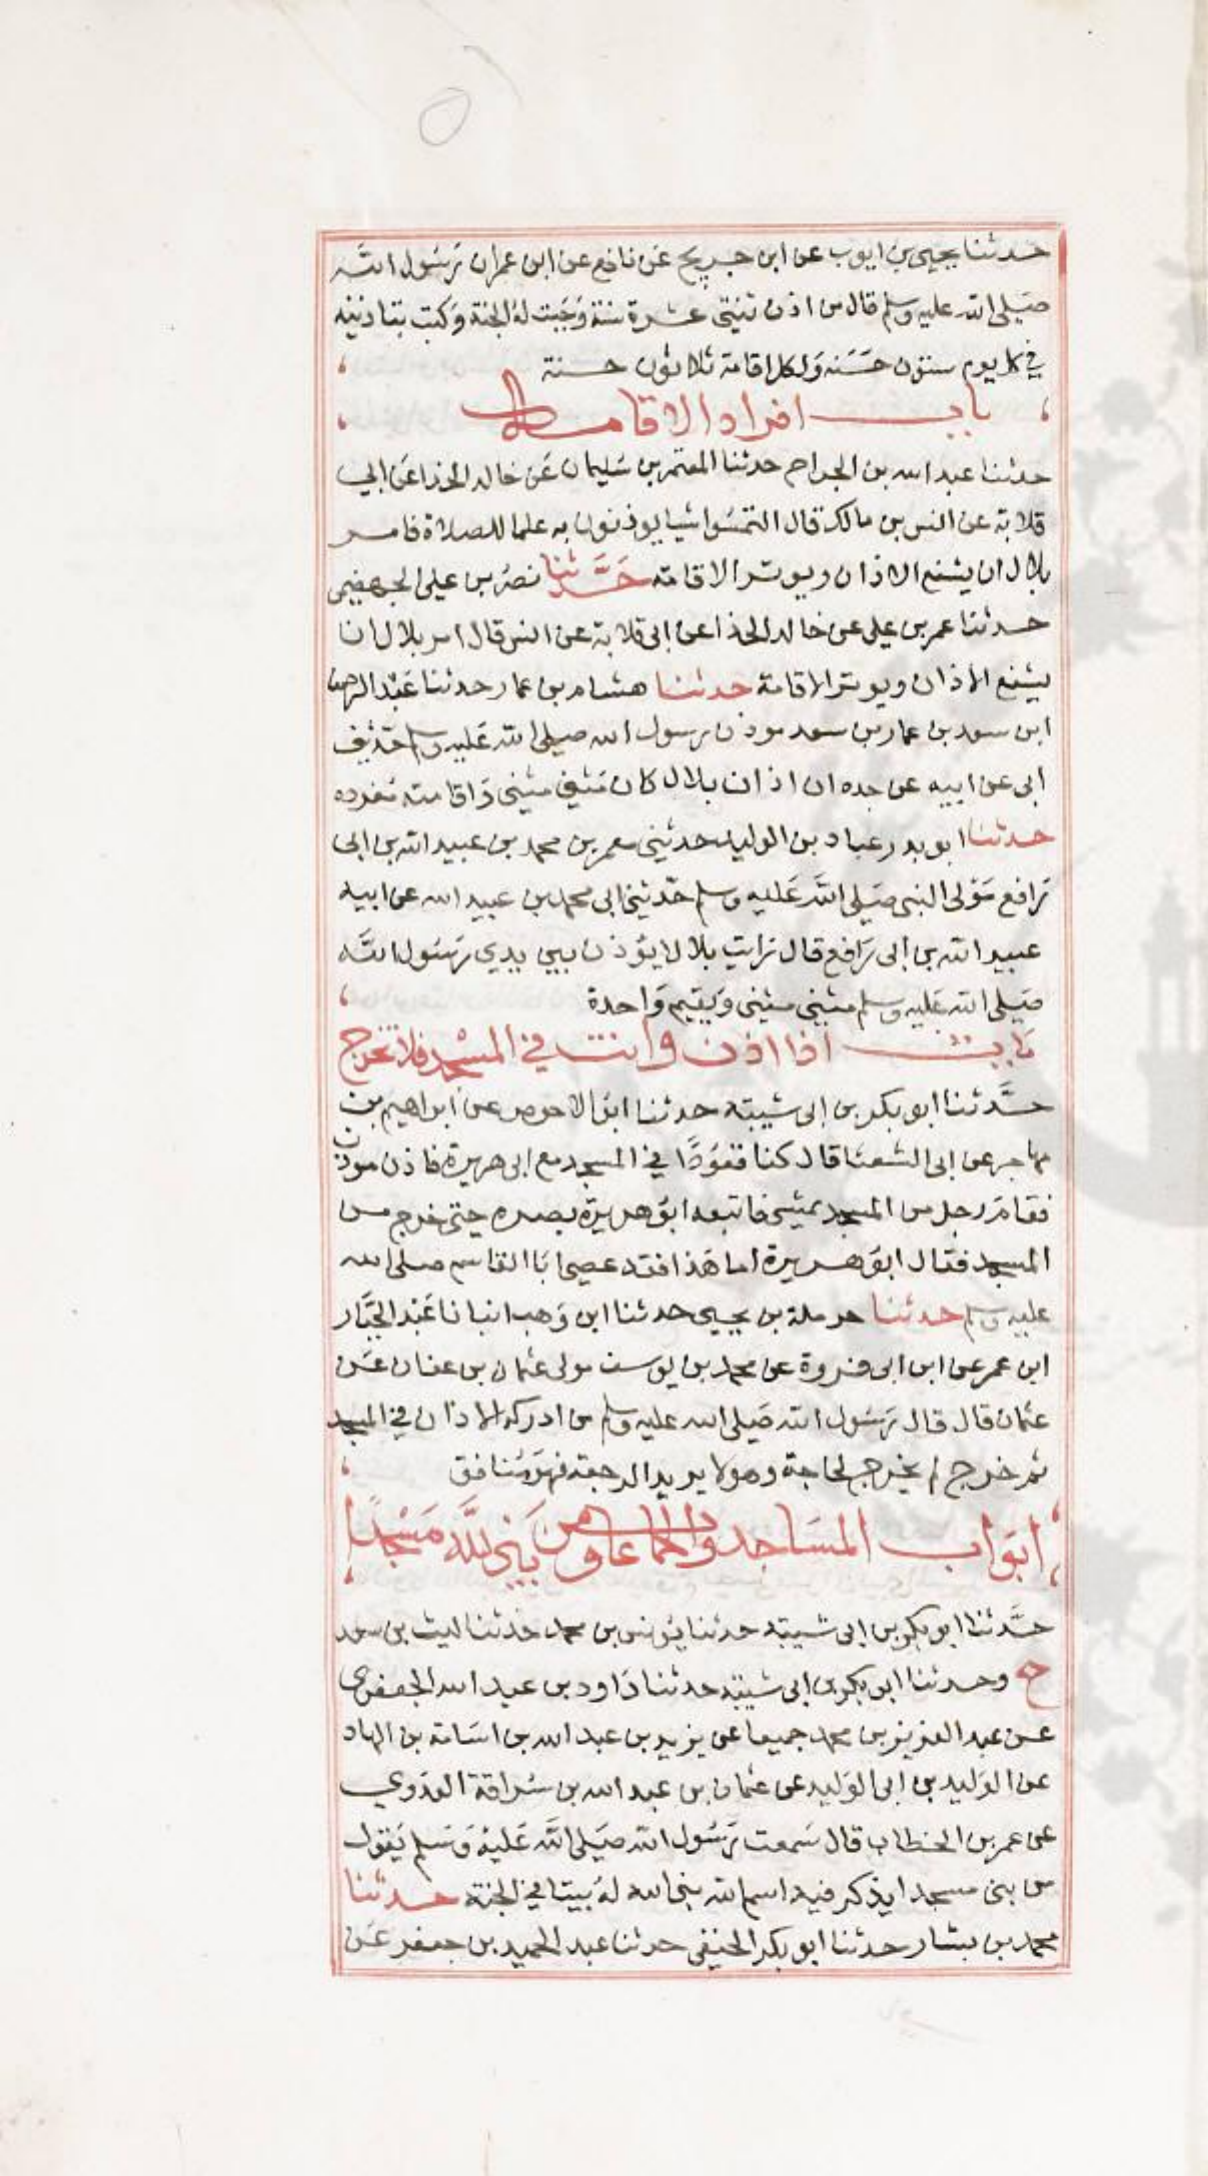 حدثنا يحيى بن ايوب عن ابن جريج عن نافع عن ابن عمر ان رسول الله
صلى الله عليه وسلم قال من اذن ثنيتى عشرة سنة وجبت له الجنة وكتب بتاذينه
في كل يوم ستون حسنه ولكل اقامة ثلاثون حسنة
باب افراد الاقامة
حدثنا عبد الله بن الجراح حدثنا المعتمر بن سليمان عن خالد الحذا عن ابي
قلابة عن انس بن مالك قال التمسوا شيا يوذنون به علما للصلاة فامر
بلال ان يشفع الاذان ويوتر الاقامة حدثنا نصر بن على الجهضمى
حدثنا عمر بن على عن خالد الحذا عن ابى قلابة عن انس قال امر بلال ان
يشفع الاذان ويوتر الاقامة حدثنا هشام بن عمار حدثنا عبد الرحمن
ابن سعد بن عمار بن سعد موذن رسول الله صلى الله عليه وسلم حدثنى
ابى عن ابيه عن جده ان اذان بلال كان مثنى مثنى واقامته مفرده
حدثنا ابو بدر عباد بن الوليد حدثنى معمر بن محمد بن عبيد الله بن ابى
رافع مولى النبى صلى الله عليه وسلم حدثنى ابى محمد بن عبيد الله عن ابيه
عبيد الله بن ابى رافع قال رايت بلالا يؤذن بين يدي رسول الله
صلى الله عليه وسلم مثنى مثنى ويقيم واحدة
باب اذا اذن وانت في المسجد فلا تخرج
حدثنا ابو بكر بن ابى شيبة حدثنا ابو الاحوص عن ابراهيم بن
مهاجر عن ابى الشعثا قال كنا قعودا في المسجد مع ابى هريرة فاذن موذن
فقام رجل من المسجد يمشى فاتبعه ابو هريرة بصره حتى خرج من
المسجد فقال ابو هريرة اما هذا فقد عصى ابا القاسم صلى الله
عليه وسلم حدثنا حرملة بن يحيى حدثنا ابن وهب انبانا عبد الجبار
ابن عمر عن ابن ابى فروة عن محمد بن يوسف مولى عثمان بن عفان عن
عثمان قال قال رسول الله صلى الله عليه وسلم من ادركه الاذان في المسجد
ثم خرج لم يخرج لحاجة وهو لا يريد الرجعة فهو منافق
ابواب المساجد والجماعات ومن بنى لله مسجدا
حدثنا ابو بكر بن ابى شيبة حدثنا يونس بن محمد حدثنا ليث بن سعد
ح وحدثنا ابو بكر بن ابى شيبة حدثنا داود بن عبد الله الجعفرى
عن عبد العزيز بن محمد جميعا عن يزيد بن عبد الله بن اسامة بن الهاد
عن الوليد بن ابى الوليد عن عثمان بن عبد الله بن سراقة العدوي
عن عمر بن الخطاب قال سمعت رسول الله صلى الله عليه وسلم يقول
من بنى مسجدا يذكر فيه اسم الله بنى الله له بيتا في الجنة حدثنا
محمد بن بشار حدثنا ابو بكر الحنفى حدثنا عبد الحميد بن جعفر عن